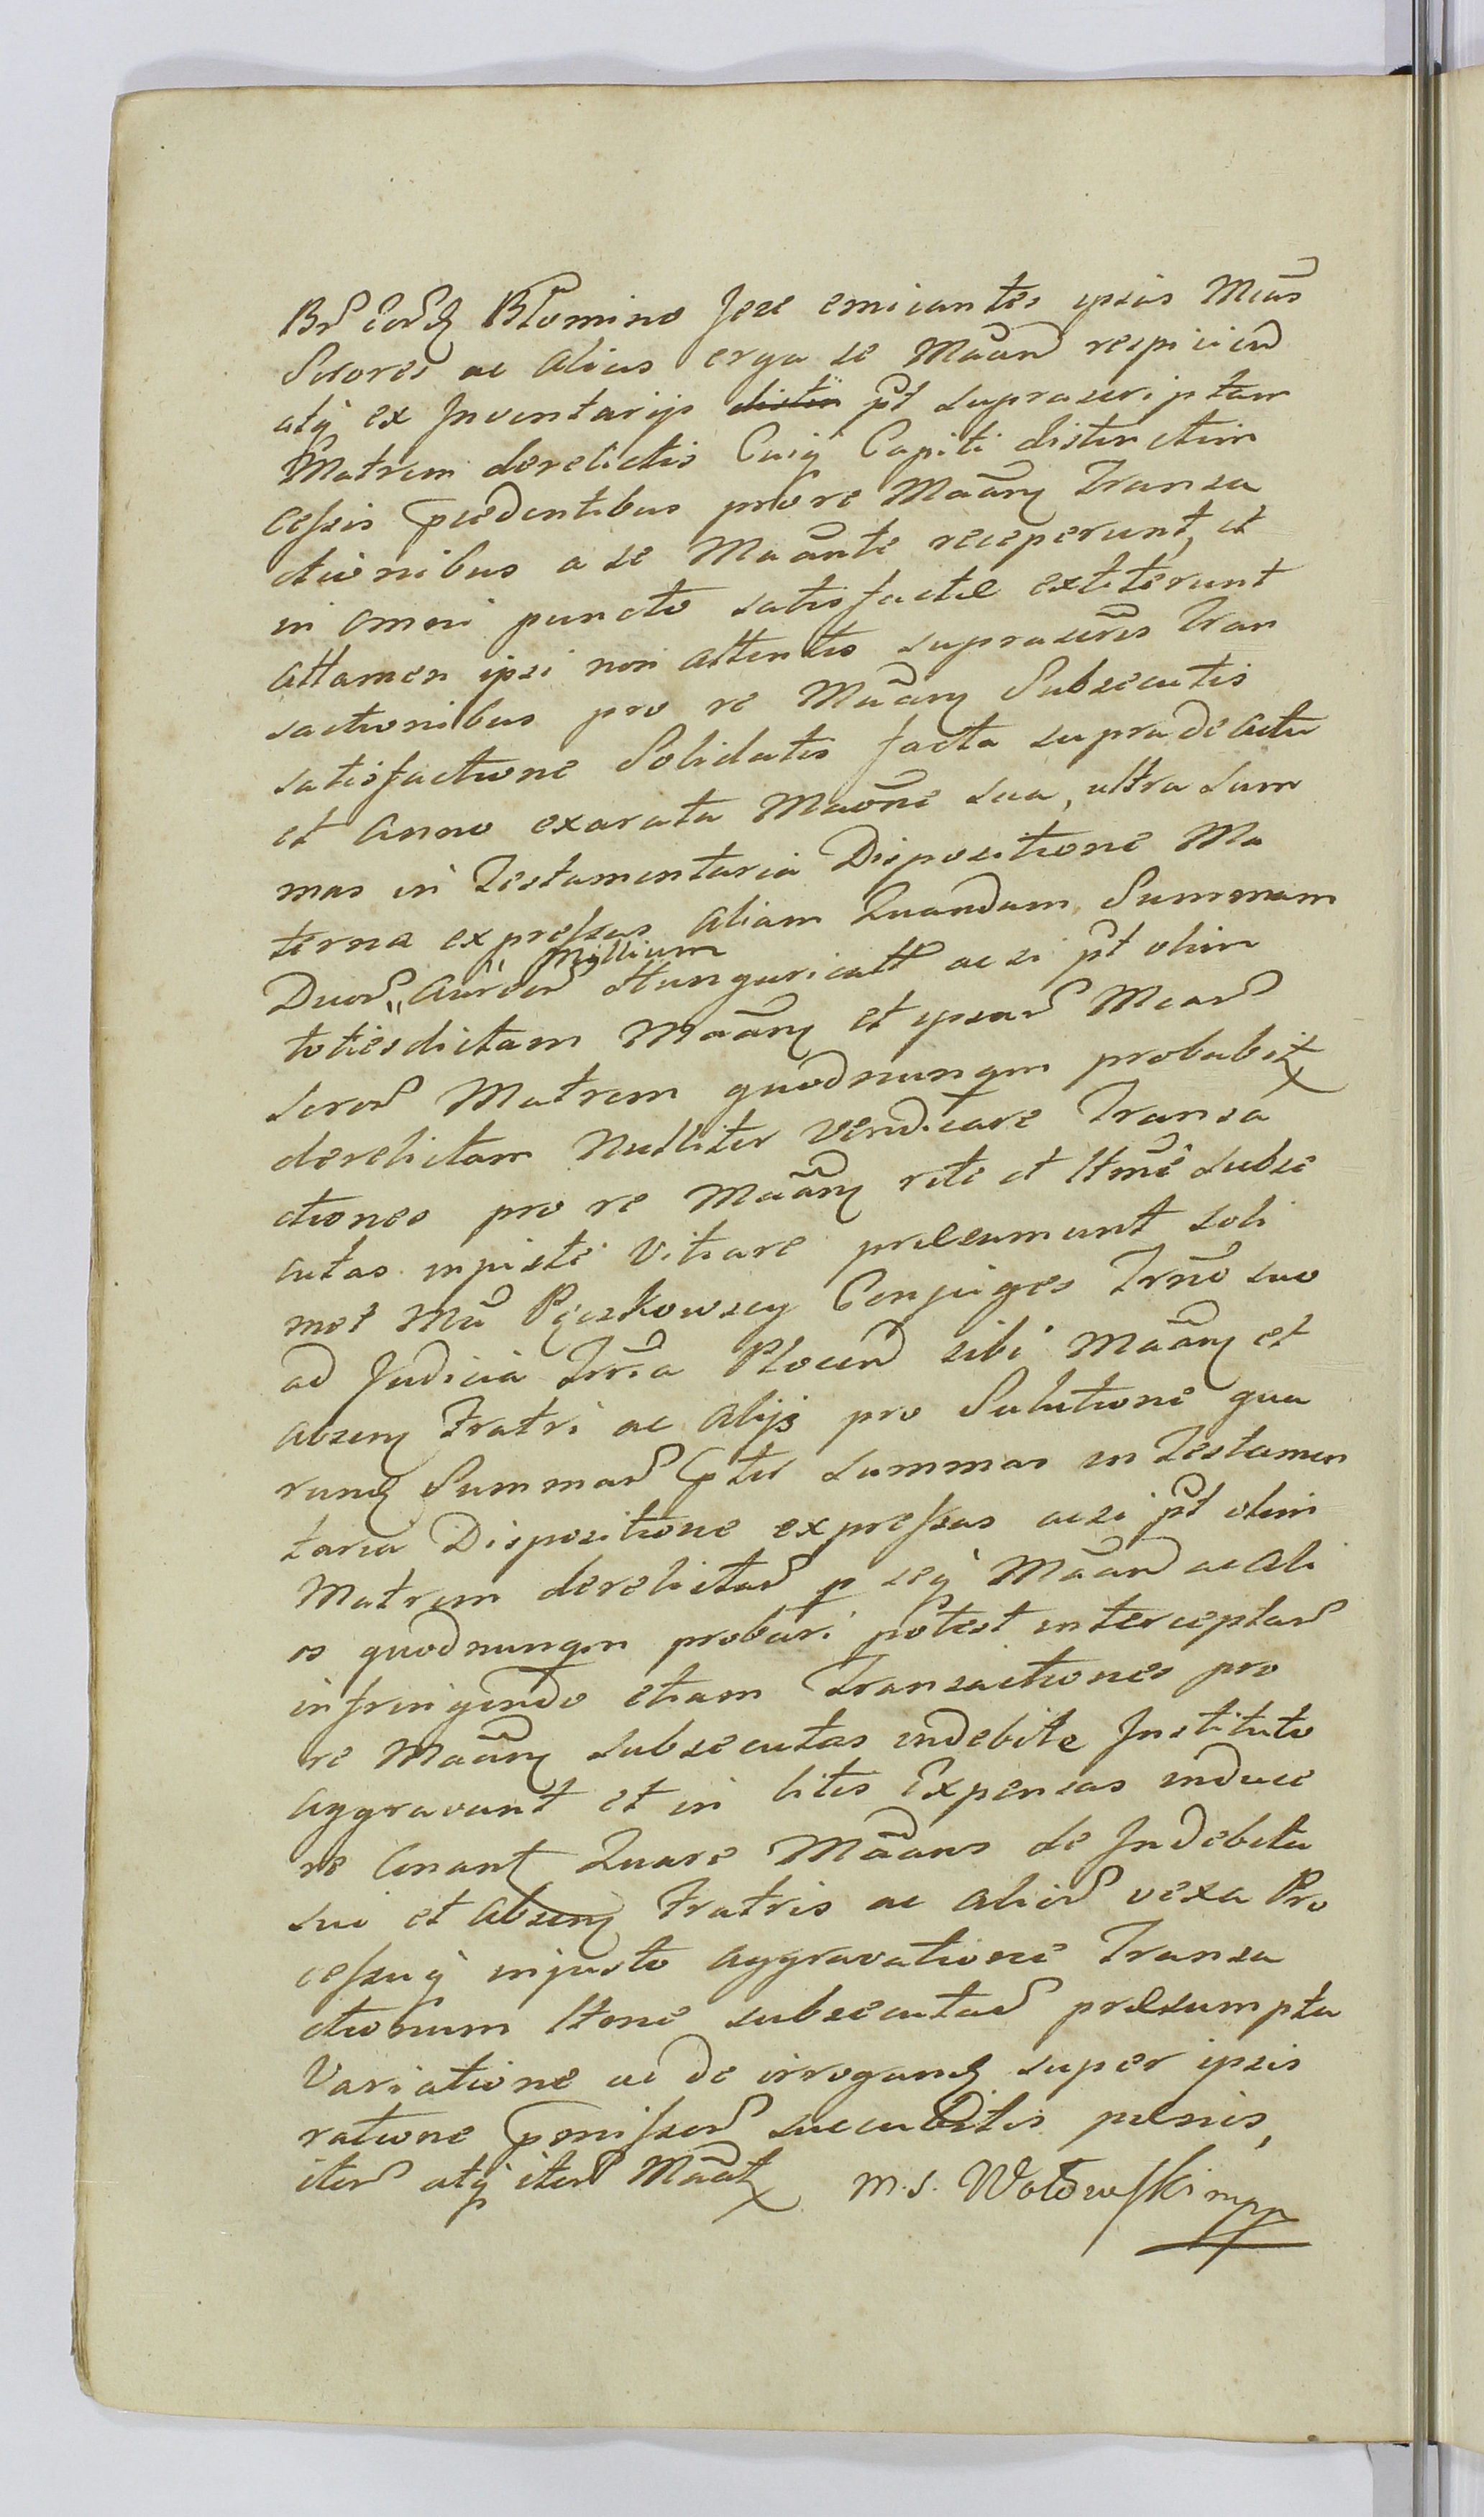 Bñ eorũ Btomino Jeze emicantes ipsas Mcas
Sorores ac alias erga se Mãan respicien
atq ex Inventarijs distin p̃t suprascriptam
Matrem derelictis Cuiq Capiti distinctim
cessis præcedentibus pro re Mãan Transa
ctionibus a se Mãante receperunt, et
in omni puncto satisfactæ extiterunt
attamen ipsi non attentis suprascris Tran
sactionibus pro re Mãan Subsecutis
satisfactione Solidatis facta supra de actu
et Anno exarata Maone sua, ultra Sum
mas in Testamentaria Dispositione Ma
terna expressas aliam Quandam Summam
Duor " Aureor " Millium Hungaricall ac si p̃t olim
totiesdictam Mãan et ipsar Mcar
soror Matrem quodnunqm probabit
derelictam Nulliter vendicare Transa
ctiones pro re Mãan rite et Ittme subse
cutas injuste Vitiare præsumunt soli
met Mci Pęczkowscy Conjuges Trño suo
ad Judicia Trria Plocen sibi Mãan et
absen Fratri ac alijs pro Solutione qua
run Summar pter summas in Testamen
taria Dispositione expressas ac si p̃t olim
Matrem derelictar p seq Mãan ac ali
os quodnunqm probari potest interceptar
infringendo etiam Transactiones pro
re Mãan subsecutas indebite Instituto
aggravant et in litis Expensas induce
re Conant Quare Mãans de Indebita
sui et absen Fratris ac alior vexa Pro
cessuq injusto aggravatione Transa
ctionum Ittme subsecutar præsumpta
Variatione ac de irrogand super ipsis
ratione præmissor succubitis pœnis,
iter atq iter Mãat M. S. Wołowski mpp